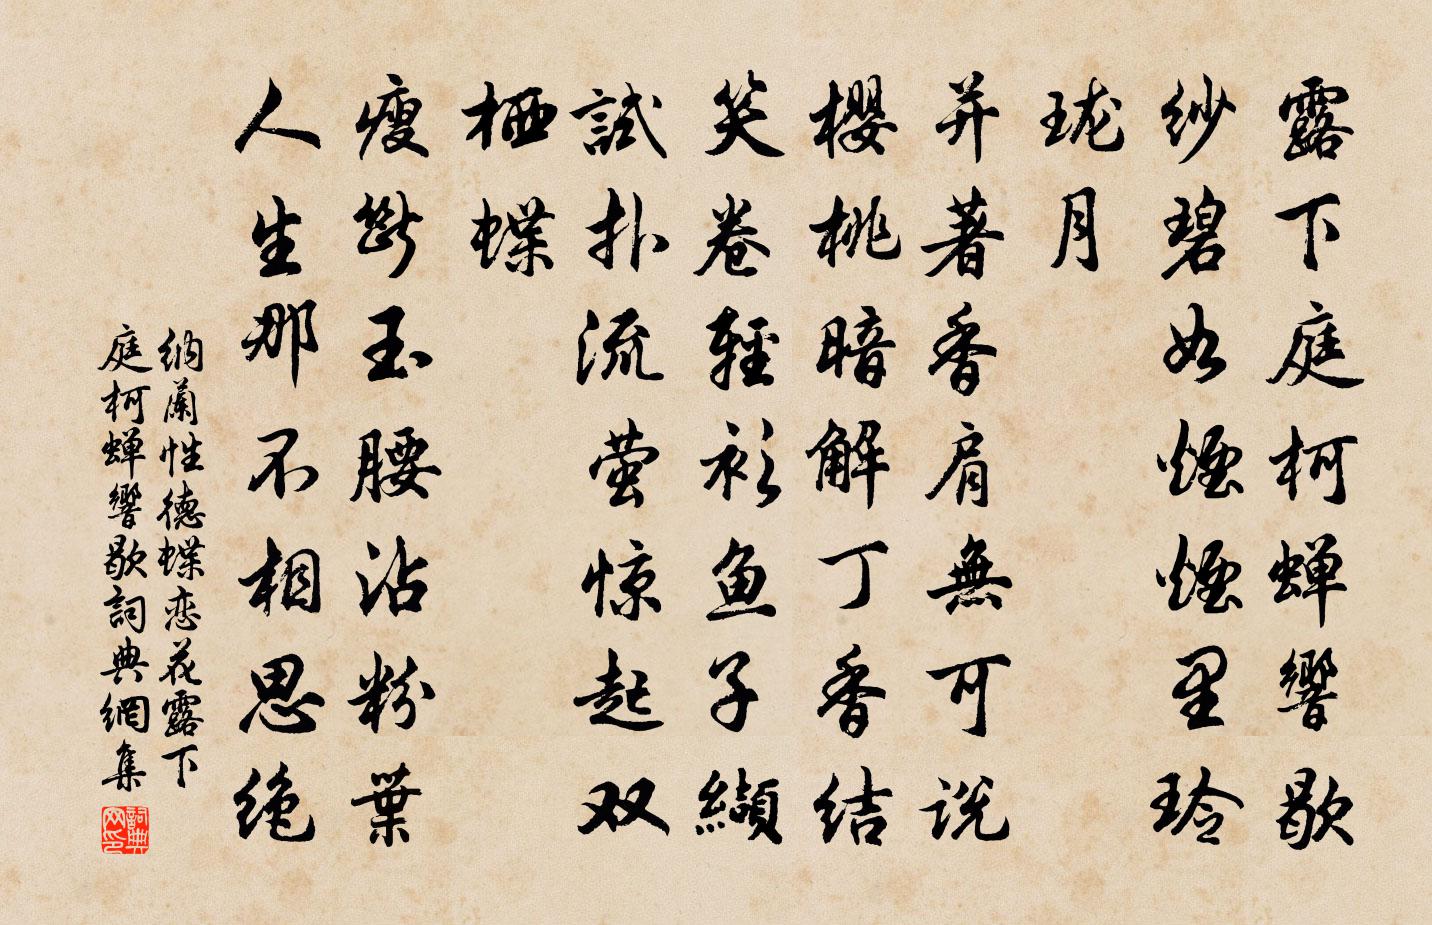 露下庭柯蝉響歇
纱碧如煙煙里玲
珑月
并著香肩無可说
櫻桃暗解丁香结
笑卷輕衫鱼子纈
試扑流萤惊起双
栖蝶
瘦斷玉腰沾粉葉
人生那不相思绝
纳蘭性德蝶恋花露下
庭柯蝉響歇詞典網集
詞典网印